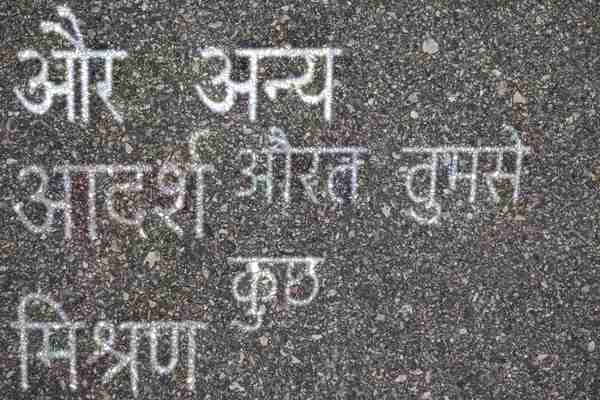 और अन्य
आदर्श औरत तुमसे
कुछ
मिश्रण